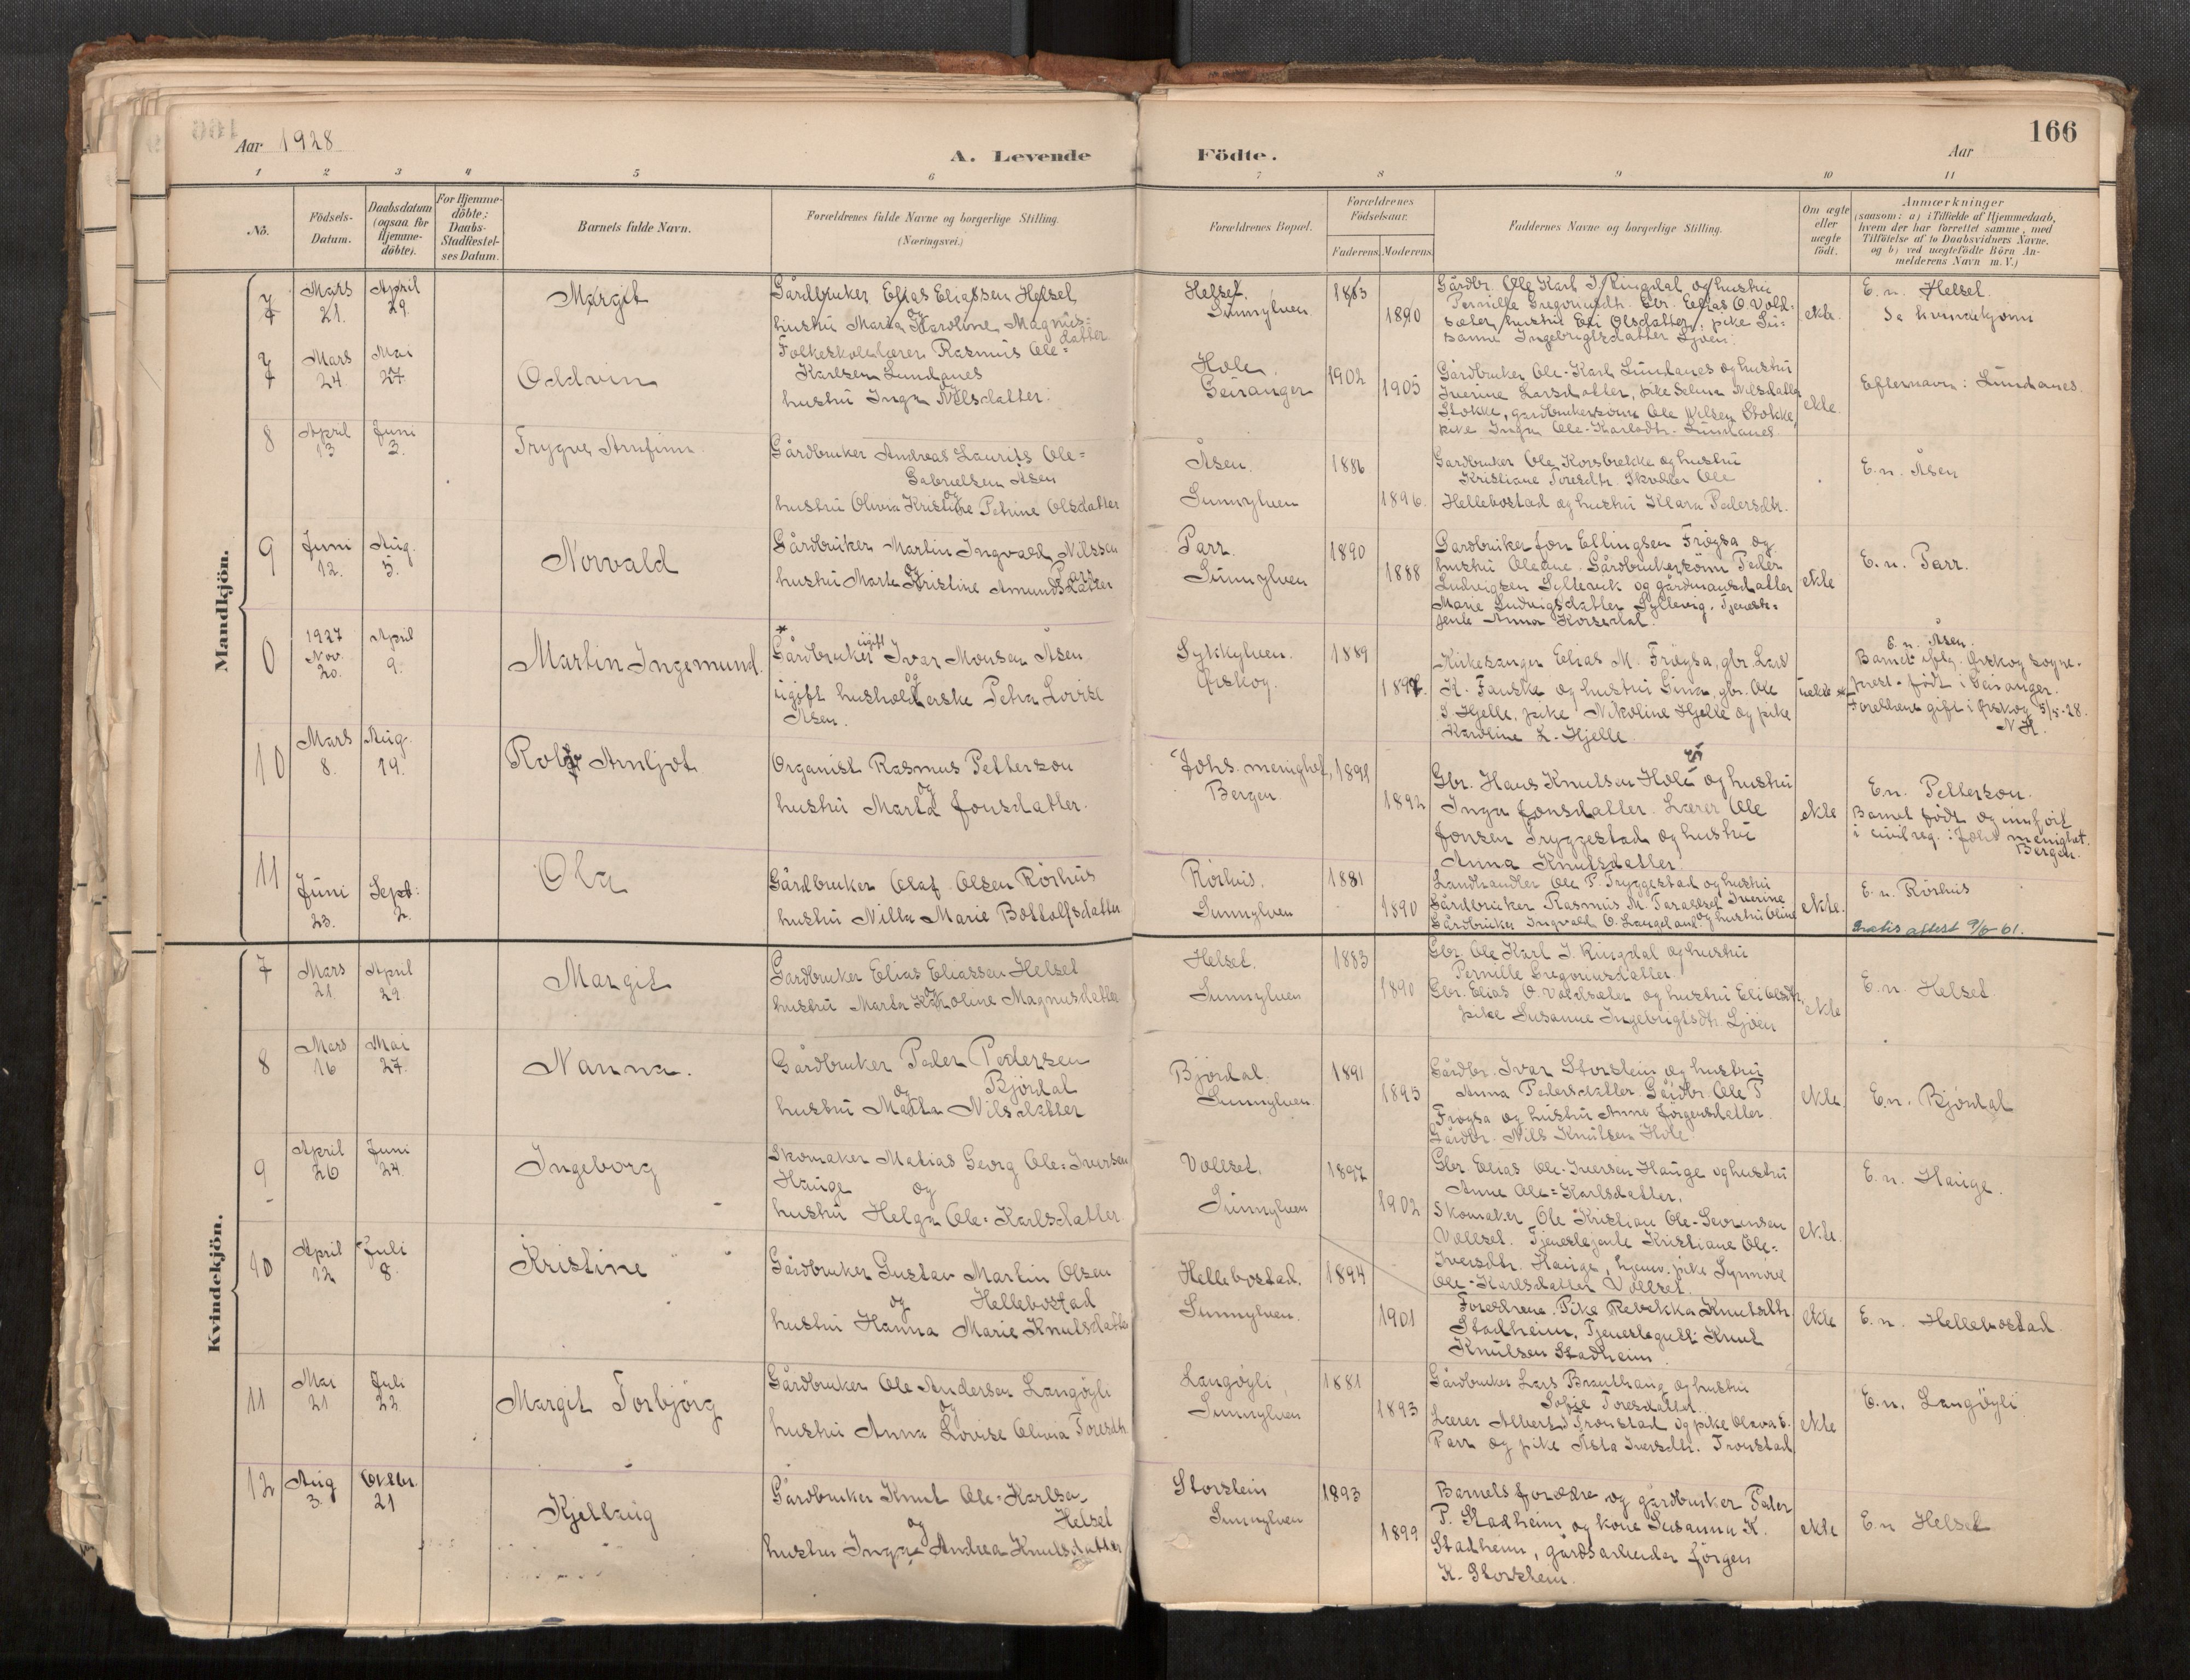 166
Aar 1928
A. Levende Födte.
Aar
1 2 3 4 5 6 7 8 9 10 11
No.
Födsels-Datum.
Daabsdatum (ogsaa for Hjemme-döbte).
For Hjemme-döbte: Daabs-Stadfæstel-ses Datum.
Barnets fulde Navn.
Forældrenes fulde Navne og borgerlige Stilling. (Næringsvei.)
Forældrenes Bopæl.
Forældrenes Födselsaar.
Faderens. Moderens.
Faddernes Navne og borgerlige Stilling.
Om ægte eller uægte födt.
Anmærkninger
(saasom: a) i Tilfælde af Hjemmedaab,
hvem der har forrettet samme, med
Tilföielse af to Daabsvidners Navne.
og b) ved uægtefödte Börn An-
melderens Navn m. V.)
Mandkjön.
7
Mars 21.
April 29.
Margit
Gårdbruker Elias Eliassen Helset
og
hustru Marta Karoline Magnus=
datter
Helset.
Sunnylven
1883
1890
Gårdbr. Ole Karl I. Ringdal og hustru
Pernille Gregoriusdtr. Gbr. Elias O. Vold-
sæter, hustru Eli Olsdatter, pike Su-
sanne Ingebrigtsdatter Ljøen.
ekte.
E. n. Helset.
Se kvindekjønn
7
Mars 24
Mai 27.
Oddvin
Folkeskolelærer Rasmus Ole=
Karlsen Lundanes
og
hustru Inga Nilsdatter.
Hole.
Geiranger
1902
1905
Gårdbruker Ole-Karl Lundanes og hustru
Iverine Larsdatter, pike Selma Nilsdatter
Stokke, gårdbrukersønn Ole Nilsen Stokke,
pike Inga Ole-Karlsdtr. Lundanes.
ekte.
Efternavn: Lundanes.
8
April 13
Juni 3.
Trygve Arnfinn.
Gårdbruker Andreas Laurits Ole=
Gabrielsen Åsen
og
hustru Olivia Kristine Petrine Olsdatter
Åsen.
Sunnylven
1886
1896.
Gardbruker Ole Korsbrekke og hustru
Kristiane Toresdtr. Skredder Ole
Hellebostad og hustru Klara Pedersdtr.
E. n. Åsen
9
Juni 12.
Aug. 5.
Norvald
Gårdbruker Martin Ingvald Nilssen
Parr
og
hustru Marte Kristine Amundsdatter
Parr.
Sunnylven
1890
1888
Gardbruker Jon Ellingsen Frøysa og
hustru Oleane. Gårdbrukersønn Peder
Ludvigsen Syltevik og gårdmansdatter
Marie Ludvigsdatter Syltevig. Tjeneste=
jente Anna Korsedal.
ekte
E. n. Parr.
0
1927
Nov. 20.
April 9.
Martin Ingemund.
*
ugift
Gårdbruker Ivar Monsen Åsen
og
ugift husholderske Petra Lovise
Åsen.
Sykkylven.
Ørskog.
1889
1897
Kirkesanger Elias M. Frøysa, gbr. Lars
K. Fauske og hustru Gina, gbr. Ole
S. Hjelle, pike Nikoline Hjelle og pike
Karoline L. Hjelle.
uekte *
E. n. Åsen.
Barnet iflg. Ørskog sogne-
prest - født i Geiranger.
Foreldrene gift i Ørskog 5/5-28.
N.H.
10
Mars 8.
Aug. 19.
Rolv Arnljot.
Organist Rasmus Petterson
og
hustru Marta Jonsdatter.
Johs. menighet,
Bergen
1891
1892
Gbr. Hans Knutsen Hole og hustru
Inga Jonsdatter. Lærer Ole
Jonsen Tryggestad og hustru
Anna Knutsdatter.
ekte
E.n. Petterson.
Barnet født og innført
i civilreg. i Johs menighet.
Bergen.
11
Juni 23.
Sept: 2.
Ola
Gårdbruker Olaf Olsen Rörhus
hustru Nilla Marie Bottolfsdatter
Rörhus.
Sunnylven
1881
1890
Landhandler Ole P. Tryggestad og hustru
Iverine
Gårdbruker Rasmus M. Taraldset
Gårdbruker Ingvald O. Langeland og hustru Oline
ekte.
E. n. Rörhus
Gratis attest 9/6-61.
Kvindekjön.
7
Mars 21
April 29
Margit
Gardbruker Elias Eliassen Helset
og
hustru Marta Karoline Magnusdatter
Helset.
Sunnylven
1883
1890
Gbr. Ole Karl I. Ringdal og hustru
Pernille Gregoriusdatter.
Gbr. Elias O. Voldsæter og hustru Eli Olsdtr,
pike Susanne Ingebrigtsdtr. Ljöen
ekte
E. n. Helset
8
Mars 16
Mai 27.
Nanna.
Gårdbruker Peder Pedersen
Bjórdal
og
hustru Marta Nilsdatter
Bjórdal.
Sunnylven
1891
1895
Gårdbr. Ivar Storstein og hustru
Anna Pedersdatter. Gårdbr. Ole P
Frøysa og hustru Anne Jørgensdatter.
Gårdbr. Nils Knutsen Hole.
ekte
E.n. Bjórdal
9
April 26
Juni 24.
Ingeborg
Skomaker Matias Georg Ole=Iversen
Hauge
og
hustru Helga Ole-Karlsdatter
Vollset.
Sunnylven
1897
1902
Gbr Elias Ole-Iversen Hauge og hustru
Anne Ole=Karlsdatter.
Skomaker Ole Kristian Ole-Severinsen
Vollset. Tjenestejente Kristiane Ole=
Iversdtr. Hauge, hjemv. pike Synnøve
Ole-Karlsdatter Vollset.
ekte.
E. n. Hauge.
10
April 12
Juli 8
Kristine
Gårdbruker Gustav Martin Olsen
og Hellebostad
hustru Hanna Marie Knutsdatter
Hellebostad.
Sunnylven.
1894
1901
Foreldrene. Pike Rebekka Knutsdtr
Stadheim, Tjenestegutt Knut
Knutsen Stadheim
ekte
E. n. Hellebostad
11
Mai 21
Juli 22
Margit Torbjørg
Gårdbruker Ole Andersen Langøyli
og
hustru Anna Lovise Olivia Toresdtr
Langøyli
Sunnylven
1881
1893
Gårdbruker Lars Brauthaug og hustru
Sofie Toresdatter
Lærer Albert Tronstad og pike Olava E.
Parr og pike Asta Iversdtr. Tronstad
ekte
E. n. Langøyli
12
Aug 3.
Oktbr. 21
Kjellaug
Gårdbruker Knut Ole-Karlsen
og Helset
hustru Inga Andrea Knutsdatter
Storstein
Sunnylven
1893
1899
Barnets foreldre og gårdbruker Peder
P. Stadheim og kone Susanna K.
Stadheim, gårdsarbeider Jörgen
K. Storstein.
ekte
E. n Helset